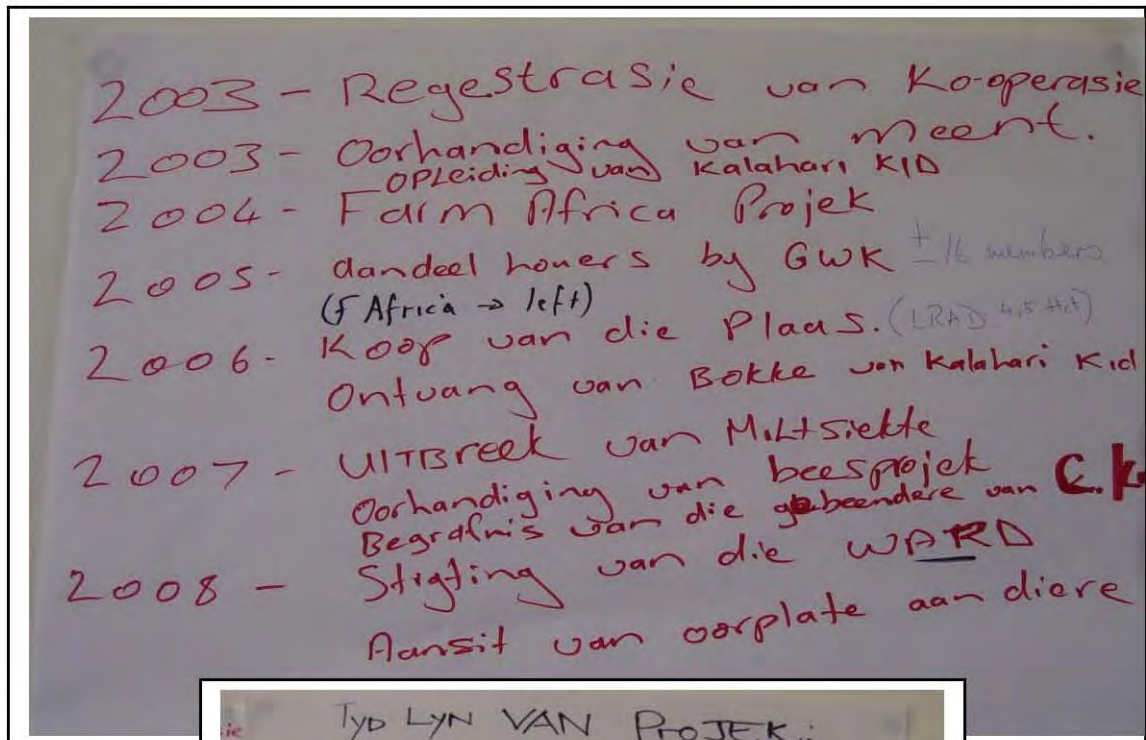 2003 - Regestrasie van Ko-operasie
2003 - Oorhandiging van meent.
OPLeiding van Kalahari KID
2004 - Farm Africa Projek
2005 - aandeel houers by GWK ± 16 members
(F Africa → left)
2006 - Koop van die Plaas. (LRAD 4,5
Ontvang van Bokke van Kalahari Kid
2007 - UITBreek van MiLtsiekte
Oorhandiging van beesprojek
Begrafnis van die gebeendere van C.K
2008 - Stigting van die WARD
Aansit van oorplate aan diere
ie
TyD LyN VAN ProJEK: